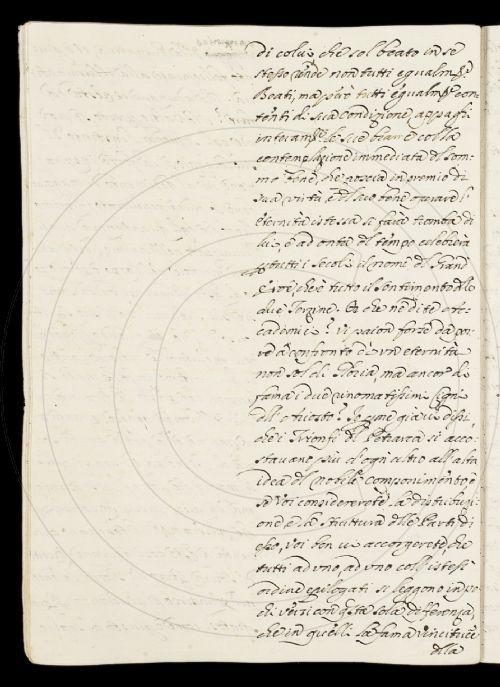 di colui che sol beato in se
stesso rende non tutti egualm.te
Beati, ma pure tutti egualm.te con-
tenti di sua condizione, appaghi
interam.te le sue brame colla
contemplazione immediata del som-
mo bene, che poscia in premio di
sua virtù, e del suo bene operare l'
eternità istessa si farà tromba di
lui, e ad onta del tempo celebrerà
tutti i secoli il nome del Grand'
Eroe, che è tutto il sentimento delle
due Terzine. Or che ne dite o Ac-
cademici? vi paion forse da por-
re a confronto d'un'eternità
non sol di Gloria, ma ancor di
fama i due rinomatissimi Cigni
dell'Ariosto? Io pure già vi dissi,
che i Trionfi del Petrarca si acco-
stavano più d'ogn'altro all'alta
idea del nobile componimento, e
se Voi considererete la distribuzi-
one, e la struttura delle Parti di
esso, voi ben vi accorgerete, che
tutti ad uno, ad uno coll'istess'
ordine epilogati si leggono in po-
chi versi con q.sta sola differenza,
che in quelli la fama vincitrice
della